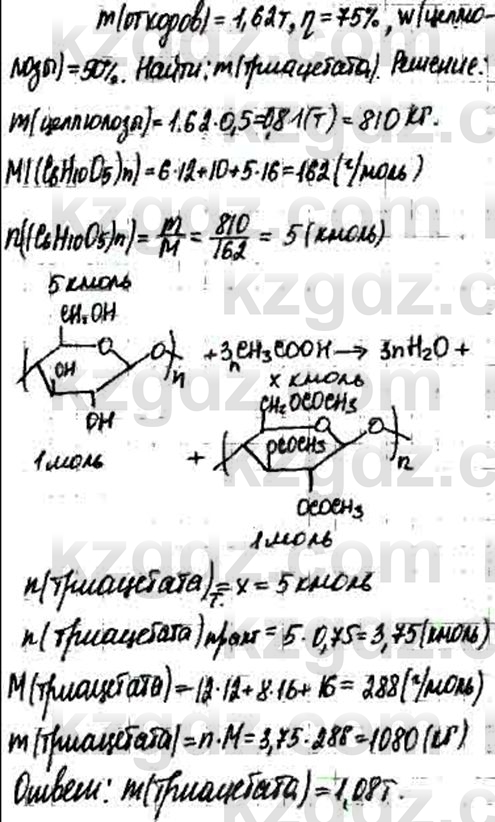 m(отходов) = 1,62т, η = 75%, w(целлю-
лозы) = 50%. Найти: m(триацетата). Решение:
m(целлюлозы) = 1.62·0,5 = 0,81(т) = 810 кг.
M((C6H10O5)n) = 6·12+10+5·16 = 162 (г/моль)
n((C6H10O5)n) = m/M = 810/162 = 5 (кмоль)
5 кмоль
CH2OH
O O
OH
n
OH
1 моль
+ 3nCH3COOH → 3nH2O +
x кмоль
CH2OCOCH3
+
O O
OCOCH3
n
OCOCH3
1 моль
n(триацетата)т. = x = 5 кмоль
n(триацетата)практ = 5·0,75 = 3,75 (кмоль)
M(триацетата) = 12·12+8·16+16 = 288 (г/моль)
m(триацетата) = n·M = 3,75·288 = 1080 (кг)
Ответ: m(триацетата) = 1,08т.
kzgdz.com